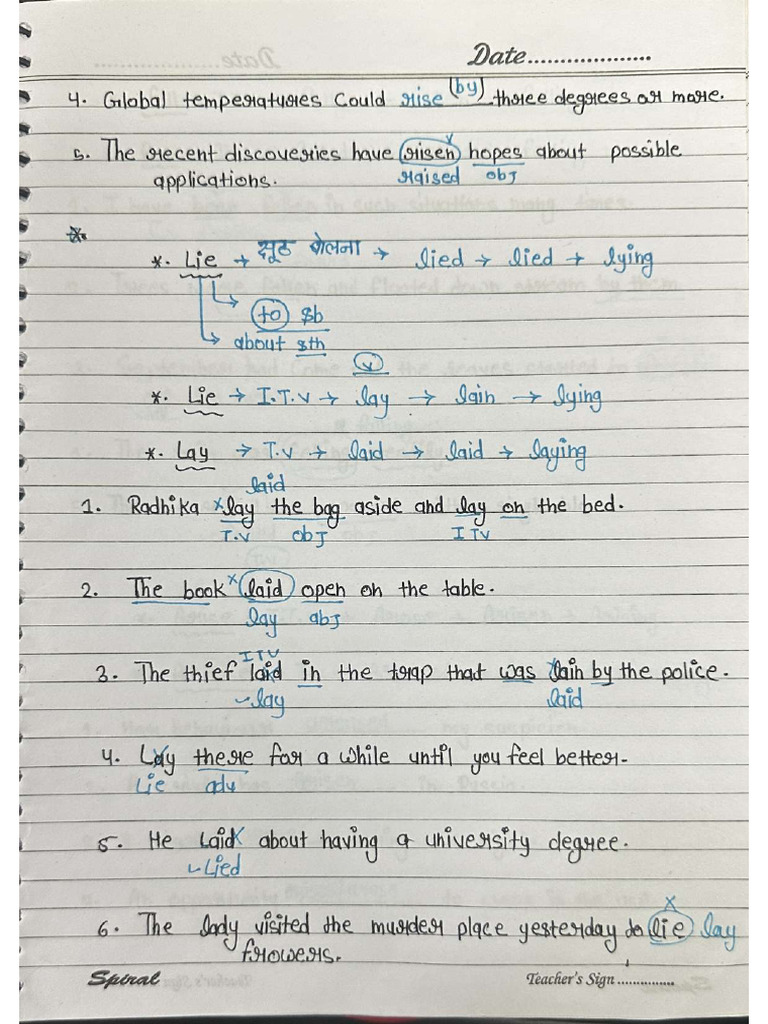 Date...................
4. Global temperatures could rise (by) three degrees or more.
v
5. The recent discoveries have risen hopes about possible
applications. raised obj
*.
*. Lie → झूठ बोलना → lied → lied → lying
(to) sb
about sth
v
*. Lie → I.T.V → lay → lain → lying
*. Lay → T.V → laid → laid → laying
laid
1. Radhika x lay the bag aside and lay on the bed.
T.V obj ITV
2. The book x laid open on the table.
lay abj
ITV
3. The thief laid in the trap that was lain by the police.
lay laid
4. Lay there for a while until you feel better.
Lie adv
5. He Laid x about having a university degree.
Lied
x
6. The lady visited the murder place yesterday to lie lay
frowers.
Spiral Teacher's Sign ...............